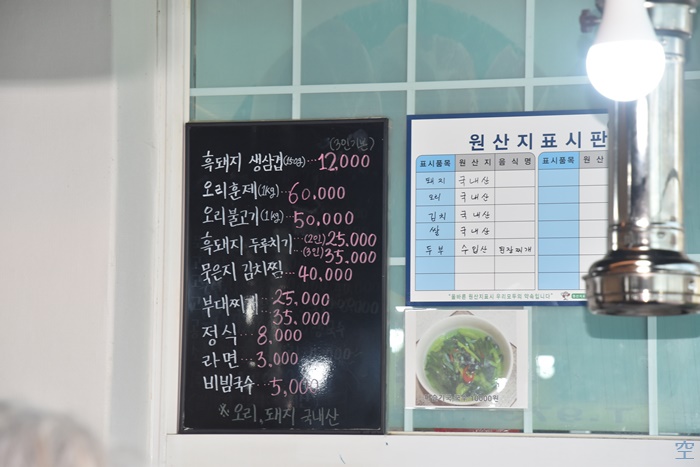 (3인기본)
흑돼지 생삼겹(150g)...12,000
오리훈제(1kg)...60,000
오리불고기(1kg)...50,000
흑돼지 두루치기...(2인)25,000
(3인)35,000
묵은지 김치찜...40,000
부대찌개...25,000
35,000
정식...8,000
라면...3,000
비빔국수...5,000
※오리,돼지 국내산
원산지표시판
표시품목 원산지 음식명 표시품목 원산
돼지 국내산
오리 국내산
김치 국내산
쌀 국내산
두부 수입산 된장찌개
"올바른 원산지표시 우리모두의 약속입니다"
10000원
空